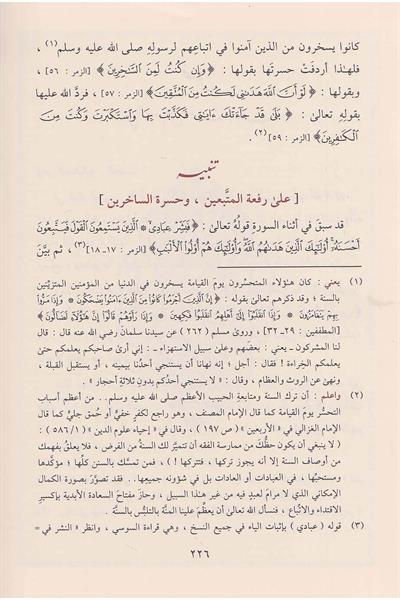 كانوا يسخرون من الذين آمنوا في اتباعهم لرسوله صلى الله عليه وسلم(١) ،
فلهٰذا أردفَتْ حسرتَها بقولها : ﴿ وَإِن كُنتُ لَمِنَ ٱلسَّٰخِرِينَ ﴾ [الزمر : ٥٦] ،
وبقولها : ﴿ لَوْ أَنَّ ٱللَّهَ هَدَىٰنِي لَكُنتُ مِنَ ٱلْمُتَّقِينَ ﴾ [الزمر : ٥٧] ، فردَّ الله عليها
بقوله تعالىٰ : ﴿ بَلَىٰ قَدْ جَآءَتْكَ ءَايَٰتِي فَكَذَّبْتَ بِهَا وَٱسْتَكْبَرْتَ وَكُنتَ مِنَ
ٱلْكَٰفِرِينَ ﴾ [الزمر : ٥٩](٢) .
تنبيه
[ علىٰ رفعة المتَّبعين ، وحسرة الساخرين ]
قد سبق في أثناء السورة قولُه تعالىٰ : ﴿ فَبَشِّرْ عِبَادِي ۞ ٱلَّذِينَ يَسْتَمِعُونَ ٱلْقَوْلَ فَيَتَّبِعُونَ
أَحْسَنَهُۥٓ أُوْلَٰٓئِكَ ٱلَّذِينَ هَدَىٰهُمُ ٱللَّهُ وَأُوْلَٰٓئِكَ هُمْ أُوْلُواْ ٱلْأَلْبَٰبِ ﴾ [الزمر : ١٧-١٨](٣) ، ثم بيَّن
(١) يعني : كان هـٰؤلاء المتحسِّرون يوم القيامة يسخرون في الدنيا من المؤمنين المتزيّنين
بالسنة ؛ وقد ذكرهم تعالىٰ بقوله : ﴿ إِنَّ ٱلَّذِينَ أَجْرَمُواْ كَانُواْ مِنَ ٱلَّذِينَ ءَامَنُواْ يَضْحَكُونَ ۞ وَإِذَا مَرُّواْ
بِهِمْ يَتَغَامَزُونَ ۞ وَإِذَا ٱنقَلَبُوٓاْ إِلَىٰٓ أَهْلِهِمُ ٱنقَلَبُواْ فَكِهِينَ ۞ وَإِذَا رَأَوْهُمْ قَالُوٓاْ إِنَّ هَٰٓؤُلَآءِ لَضَآلُّونَ ﴾
[المطففين : ٢٩-٣٢] ، وروىٰ مسلم ( ٢٦٢ ) عن سيدنا سلمانَ رضي الله عنه قال : قال
لنا المشركون - يعني : بعضهم وعلىٰ سبيل الاستهزاء - : إني أرىٰ صاحبكم يعلمكم حتىٰ
يعلمكم الخِراءة ! فقال : أجل ؛ إنه نهانا أن يستنجيَ أحدُنا بيمينه ، أو يستقبل القبلة ،
ونهىٰ عن الروث والعظام ، وقال : « لا يستنجي أحدُكم بدون ثلاثةِ أحجار » .
(٢) واعلم : أن ترك السنة ومتابعة الحبيب الأعظم صلى الله عليه وسلم.. من أعظم أسباب
التحسُّر يومَ القيامة كما قال الإمام المصنف ، وهو راجع لكفرٍ خفيٍّ أو حُمقٍ جليٍّ كما قال
الإمام الغزالي في « الأربعين » ( ص ١٩٧ ) ، وقال في « إحياء علوم الدين » ( ٥٨٦/١ ) :
( لا ينبغي أن يكون حظُّك من ممارسة الفقه أن تتميَّز لك السنة من الفرض ، فلا يعلق بفهمك
من أوصاف السنة إلا أنه يجوز تركها ، فتتركها ! ) ، فمن تمسَّك بالسنن كلِّها ؛ مؤكَّدها
ومستحبِّها ، في العبادات أو العادات بل في شؤونه جميعها.. فقد تصوَّر بصورة الكمال
الإمكاني الذي لا مرامَ لعبد فيه من غير هـٰذا السبيل ، وحاز مفتاحَ السعادة الأبدية بإكسيرِ
الاقتداء والاتباع ، فنسأل الله تعالىٰ أن يعظِّمَ علينا المنَّة بالتلبُّس بالسنَّة .
(٣) قوله ( عبادي ) بإثبات الياء في جميع النسخ ، وهي قراءة السوسي ، وانظر « النشر في =
٢٢٦